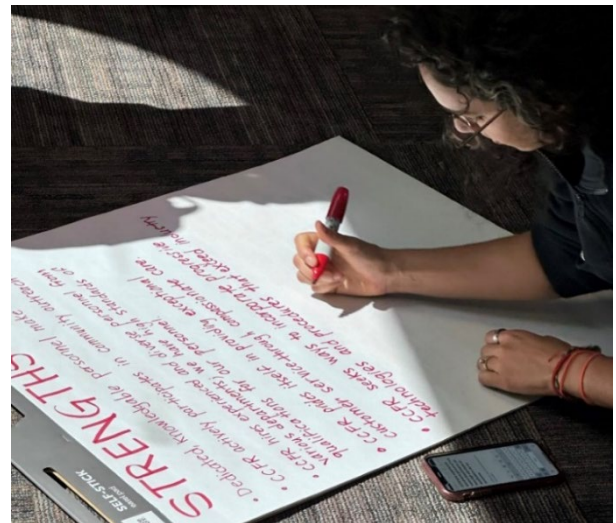 SELF-STICK
STRENGTHS
• Dedicated, knowledgable personnel make
• CCFR actively participates in community
• CCFR hires experienced and diverse personnel from
various departments. We have high standards of
qualifications for our personnel.
• CCFR prides itself in providing exceptional
customer service through compassionate care.
• CCFR seeks ways to incorporate progressive
technologies and procedures that exceed industry